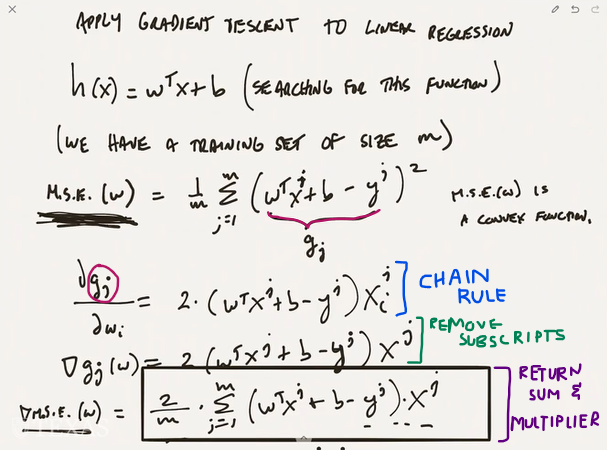 APPLY GRADIENT DESCENT TO LINEAR REGRESSION
h(x) = wᵀx + b (SEARCHING FOR THIS FUNCTION)
(WE HAVE A TRAINING SET OF SIZE m)
M.S.E.(w) = 1/m Σ_{j=1}^{m} (wᵀxʲ + b − yʲ)²
g_j
M.S.E.(w) IS
A CONVEX FUNCTION.
∂g_j/∂w_i = 2·(wᵀxʲ + b − yʲ) x_iʲ
CHAIN
RULE
∇g_j(w) = 2(wᵀxʲ + b − yʲ) xʲ
REMOVE
SUBSCRIPTS
∇M.S.E.(w) = 2/m · Σ_{j=1}^{m} (wᵀxʲ + b − yʲ)·xʲ
RETURN
SUM &
MULTIPLIER